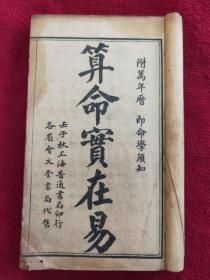 附萬年曆 即命學須知
算命實在易
壬子秋上海普通書局印行
各省會文堂書局代售